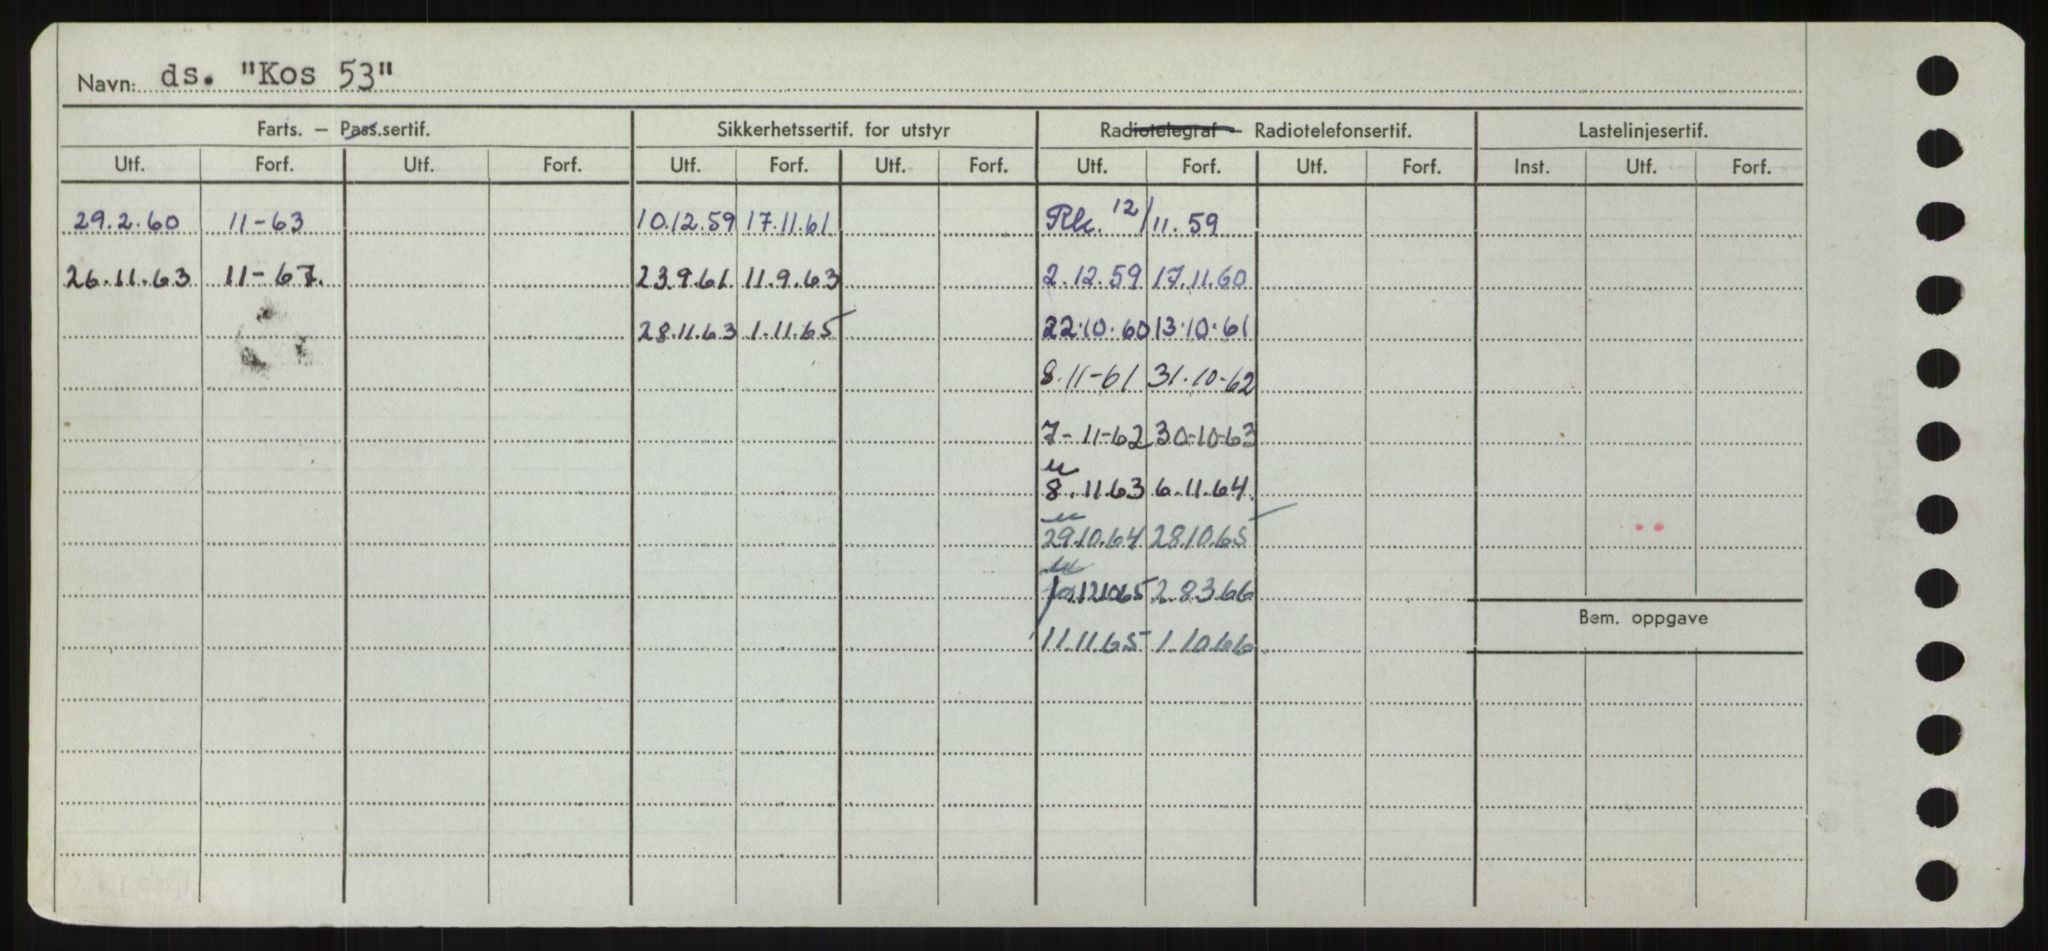 Navn: ds. "Kos 53"
Farts. — Pass.sertif. Sikkerhetssertif. for utstyr Radiotelegraf — Radiotelefonsertif. Lastelinjesertif.
Utf. Forf. Utf. Forf. Utf. Forf. Utf. Forf. Utf. Forf. Utf. Forf. Inst. Utf. Forf.
29.2.60 11-63 10.12.59 17.11.61 12/11.59
26.11.63 11-67. 23.9.61 11.9.63 2.12.59 17.11.60
28.11.63 1.11.65 22.10.60 13.10.61
8.11-61 31.10-62
7-11-62 30-10-63
8.11.63 6.11.64.
29.10.64 28.10.65
12.10.65 28.3.66
Bem. oppgave
11.11.65 1.10.66